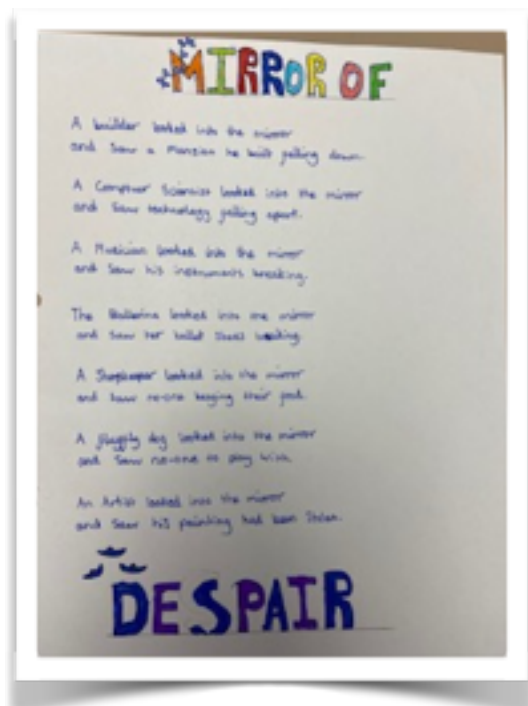 MIRROR OF
A builder looked into the mirror
and saw a Mansion he built falling down.
A Computer Scientist looked into the mirror
and saw technology falling apart.
A Musician looked into the mirror
and saw his instruments breaking.
The Ballerina looked into the mirror
and saw her ballet shoes breaking.
A Shopkeeper looked into the mirror
and saw no-one buying their food.
A dog looked into the mirror
and saw no-one to play with.
An Artist looked into the mirror
and saw his painting had been stolen.
DESPAIR